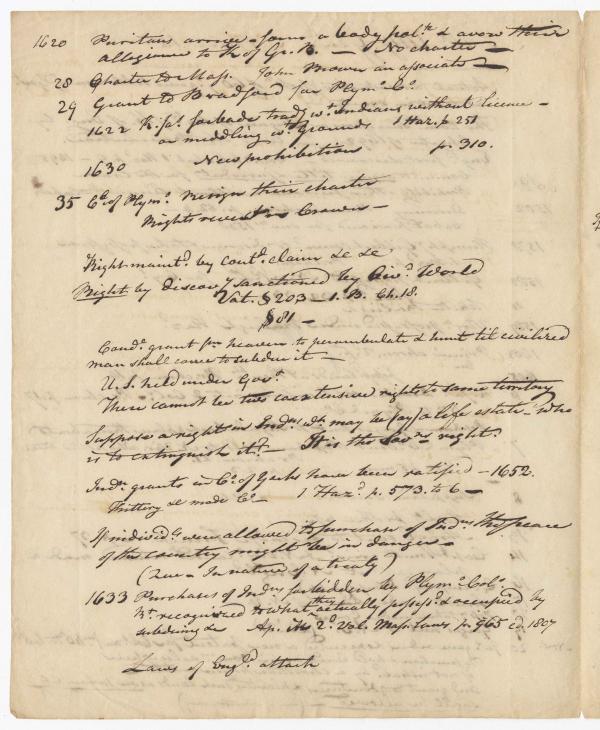 1620 Puritans arrive - form a body pol.k & avow their
allegiance to K of Gr. B. — No charter —
28 Charter to Mass. John Brown an associate —
29 Grant to Bradford for Plymo. Co.
1622 K. Ja.s forbade trad.g wt. Indians without licence -
or meddling wt. grounds 1 Haz. p. 251
1630 New prohibition p. 310.
35 Co. of Plymo. Resign their charter
Rights revert in Crown —
Right maint.d by cont.d claim &c &c
Right by discov.y sanctioned by Civ.d World
Vat. § 203 — 1. B. Ch. 18.
§ 81 —
Cond.l grant fm heaven to perambulate & hunt til civilized
man shall come to subdue it —
U. S. held under Gov.t
There cannot be two coextensive rights to same territory
Suppose a right in Ind.ns wh. may be (say) a life estate - who
is to extinguish it? — It is the Sov.ns right.
Ind.n grants in Co. of Yorks have been ratified — 1652.
Territory &c made Co. — 1 Haz.d p. 573. to 6 —
If individ.s were allowed to purchase of Ind.ns the peace
of the country might be in danger -
(Quere - In nature of a treaty)
1633 Purchases of Ind.ns forbidden by Plymo. Col.y
Rt. recognised to what they actually possess.d & occupied by
subduing &c Ap. 2d. Vol. Mass. Laws p. 965 ed. 1807
Laws of Eng.d attach